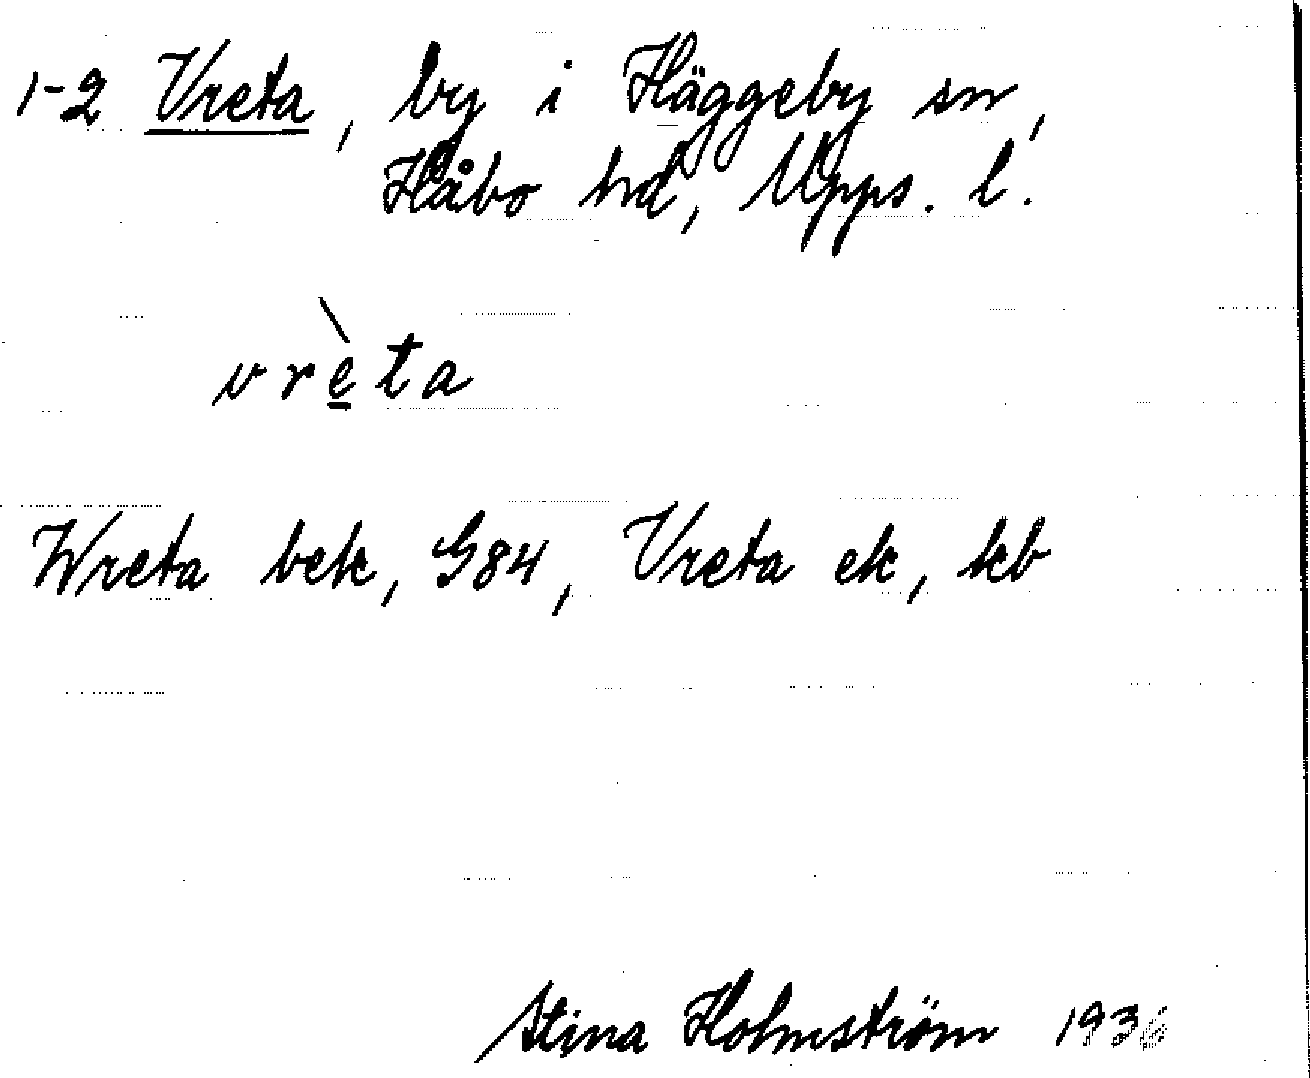 1-2 Vreta, by i Häggeby sn,
Håbo hd, Upps. l.
vrèta
Wreta bek, G84, Vreta ek, kb
Stina Holmström 1936